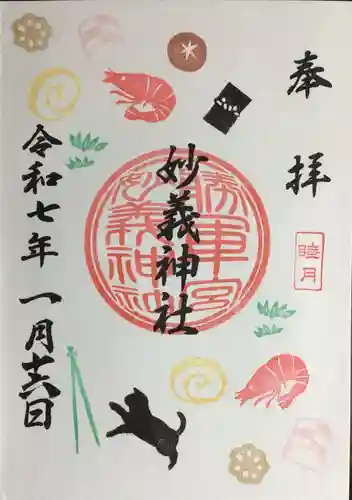 奉拝
睦月
妙義神社
令和七年一月十六日